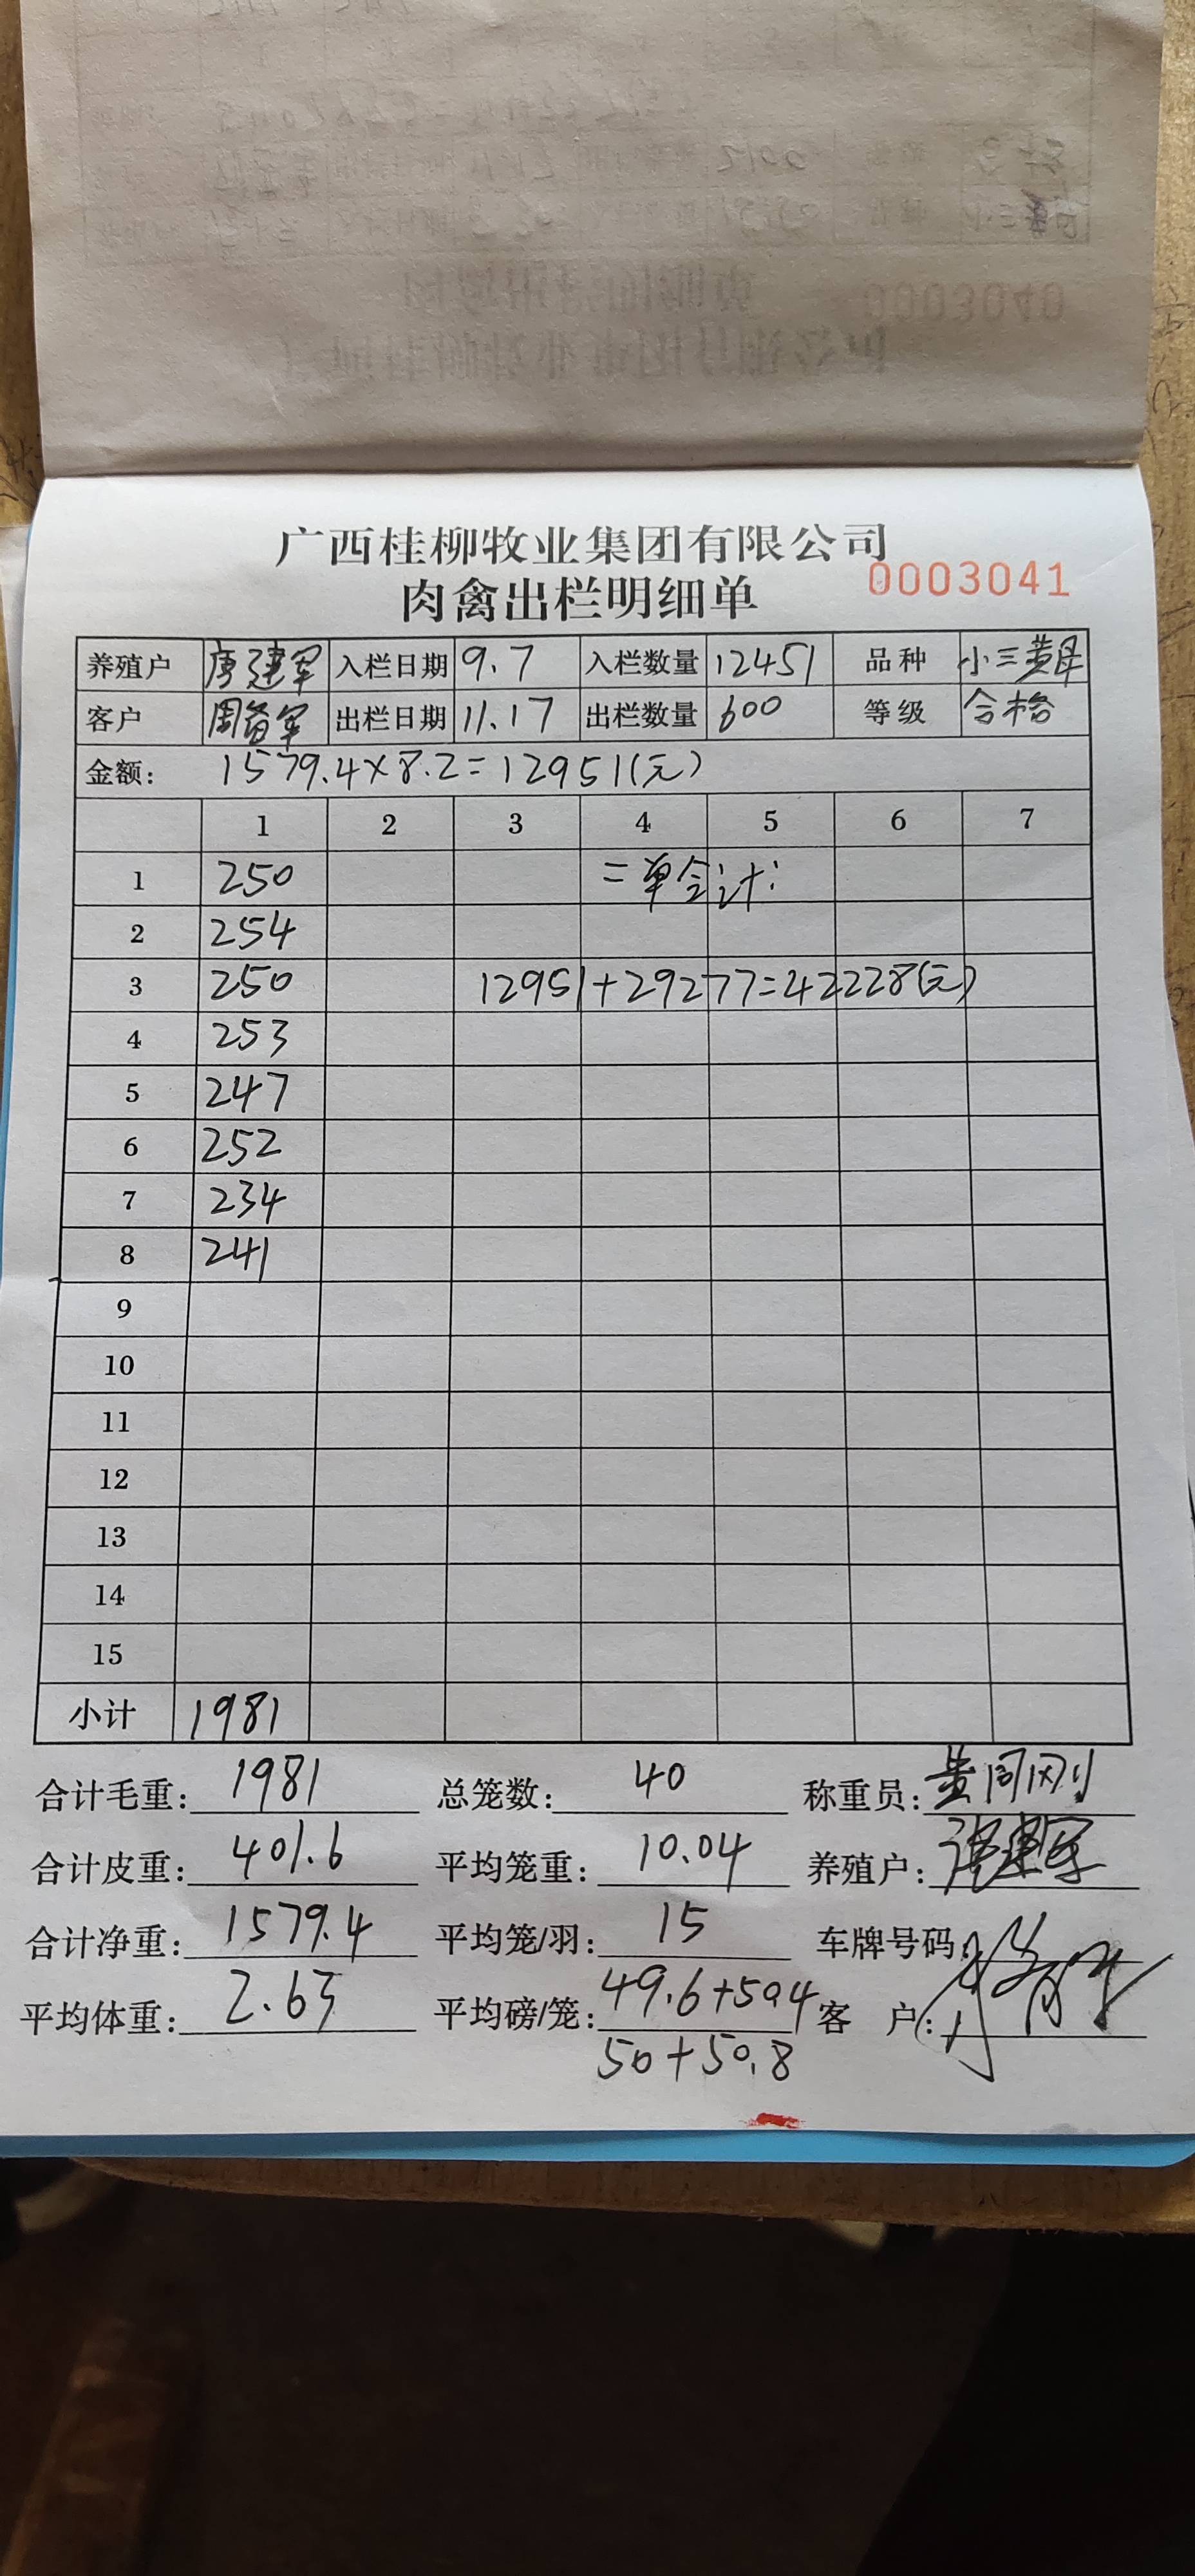 广西桂柳牧业集团有限公司
肉禽出栏明细单 0003041
养殖户 唐建军 入栏日期 9.7 入栏数量 12451 品种 小三黄
客户 周 军 出栏日期 11.17 出栏数量 600 等级 合格
金额: 1579.4×8.2=12951(元)
1 2 3 4 5 6 7
1 250 二单合计:
2 254
3 250 12951+29277=42228(元)
4 253
5 247
6 252
7 234
8 241
9
10
11
12
13
14
15
小计 1981
合计毛重: 1981 总笼数: 40 称重员:
合计皮重: 401.6 平均笼重: 10.04 养殖户:
合计净重: 1579.4 平均笼/羽: 15 车牌号码:
平均体重: 2.63 平均磅/笼: 49.6+50.4 客 户:
50+50.8
0003040